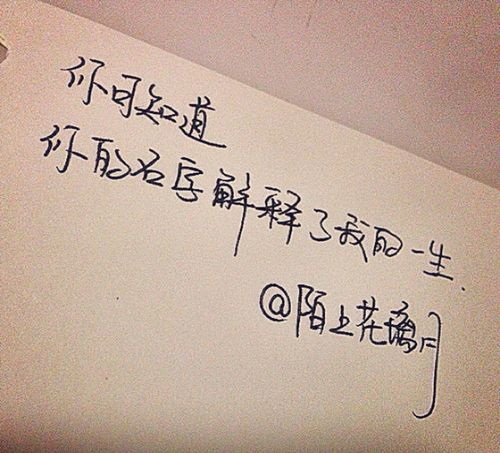 你可知道
你的名字解释了我的一生.
@陌上花璃月